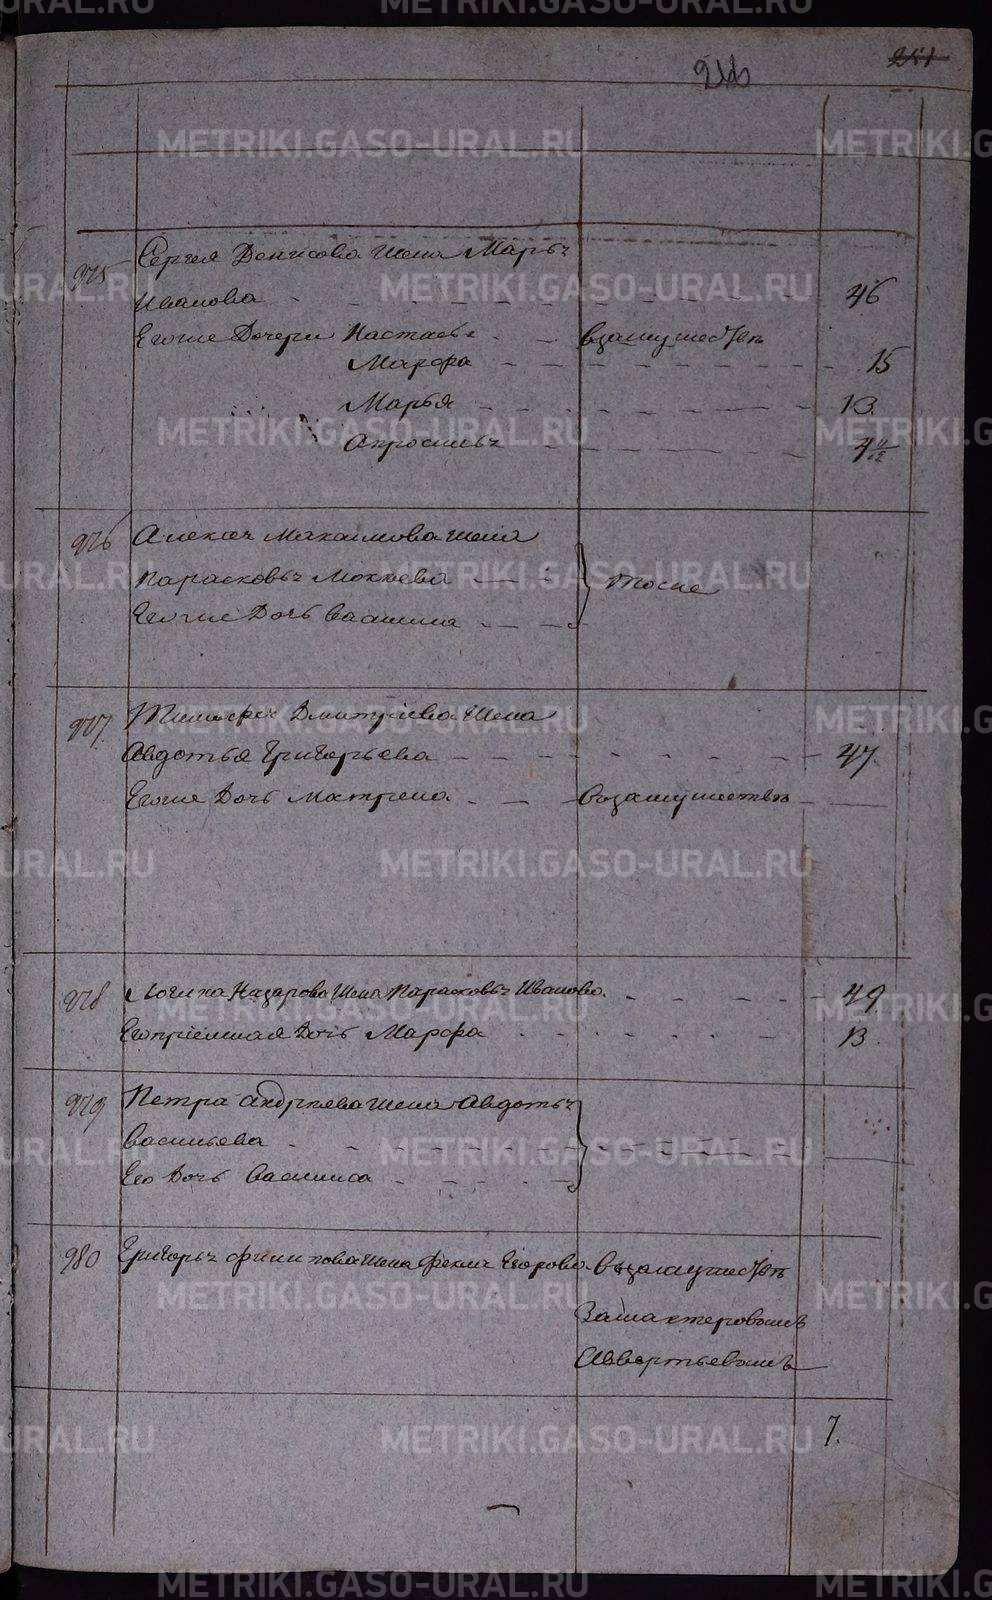 251
975 Сергея Денисова жена Марья
Иванова 46
Егоже дочери Настасья взамужествѣ
Марфа 15
Марья 13.
Апросинья 4
976 Алексея Максимова жена
Парасковья Мокеева тоже
Егоже дочь Василиса
977 Тимофея Дмитриева жена
Авдотья Григорьева 47.
Егоже дочь Матрена взамужествѣ
978 Логина Назарова жена Парасковья Иванова 49
Его приемная дочь Марфа 13.
979 Петра Андреева жена Авдотья
Васильева
Его дочь Василиса
980 Григорья Филипова жена Фекла Егорова взамужествѣ
за мастеровымъ
7.
METRIKI.GASO-URAL.RU